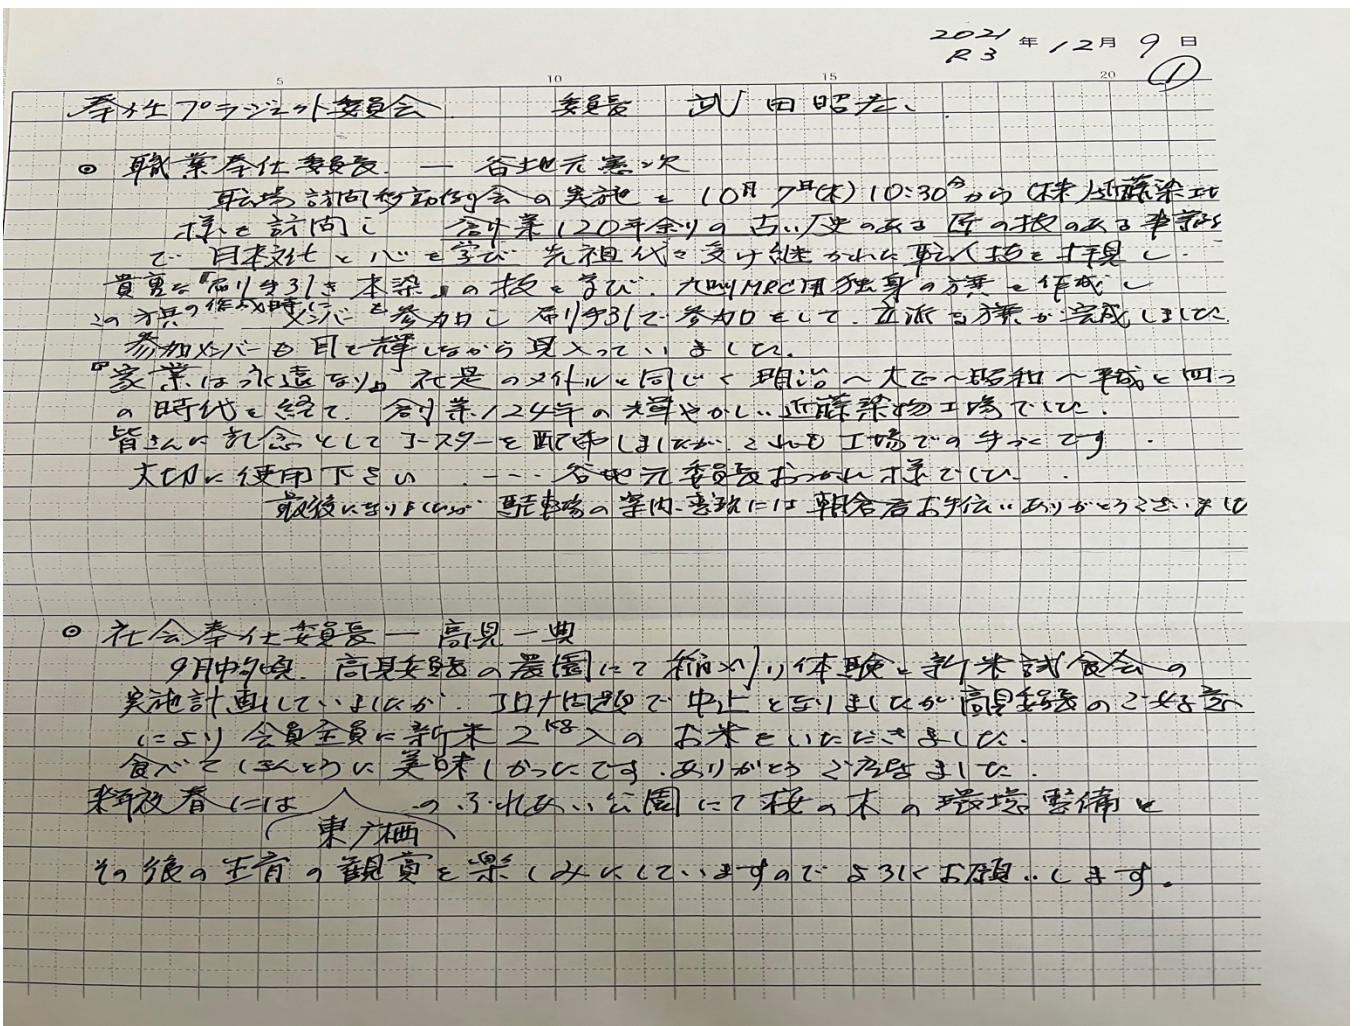 2021
R3 年 12月 9日
5 10 15 20 ①
奉仕プラジェクト委員会 委員長 武田昭宏
◎ 職業奉仕委員長 ー 谷地元憲次
職場訪問移動例会の実施を10月7日(木)10:30分から(株)近藤染工場
様を訪問し 創業120年余りの古い歴史のある匠の技のある
で日本文化と心を学び先祖代々受け継がれた職人技を拝見し
貴重な『硝り手引き本染』の技を学び、 MRC用独身の旗を作成し
この旗の作成時にメンバーを参加し 手引で参加をして、立派な旗が完成しました
参加メンバーも目を輝しながら見入っていました。
『家業は永遠なり』社是のタイトルと同じく明治〜大正〜昭和〜平成と四つ
の時代を経て、創業124年の輝やかしい近藤染物工場でした。
皆さんに記念としてコースターを配布しましたが、これも工場での手づくです
大切に使用下さい ‥‥谷地元委員長おつかれ様でした
最後になりましたが 駐車場の案内、 には朝倉君お手伝いありがとうございました
◎ 社会奉仕委員長 ー 高見一典
9月中旬頃、高見委員長の農園にて稲刈り体験と新米試食会の
実施計画していましたが、コロナ問題で中止となりましたが高見委員長のご好意
により会員全員に新米2kg入のお米をいただきました。
食べてほんとうに美味しかったです。ありがとうご座いました。
釈放春には のふれあい公園にて桜の木の環境整備と
東広栖
その後の生育の観賞を楽しみにしていますのでよろしくお願いします。